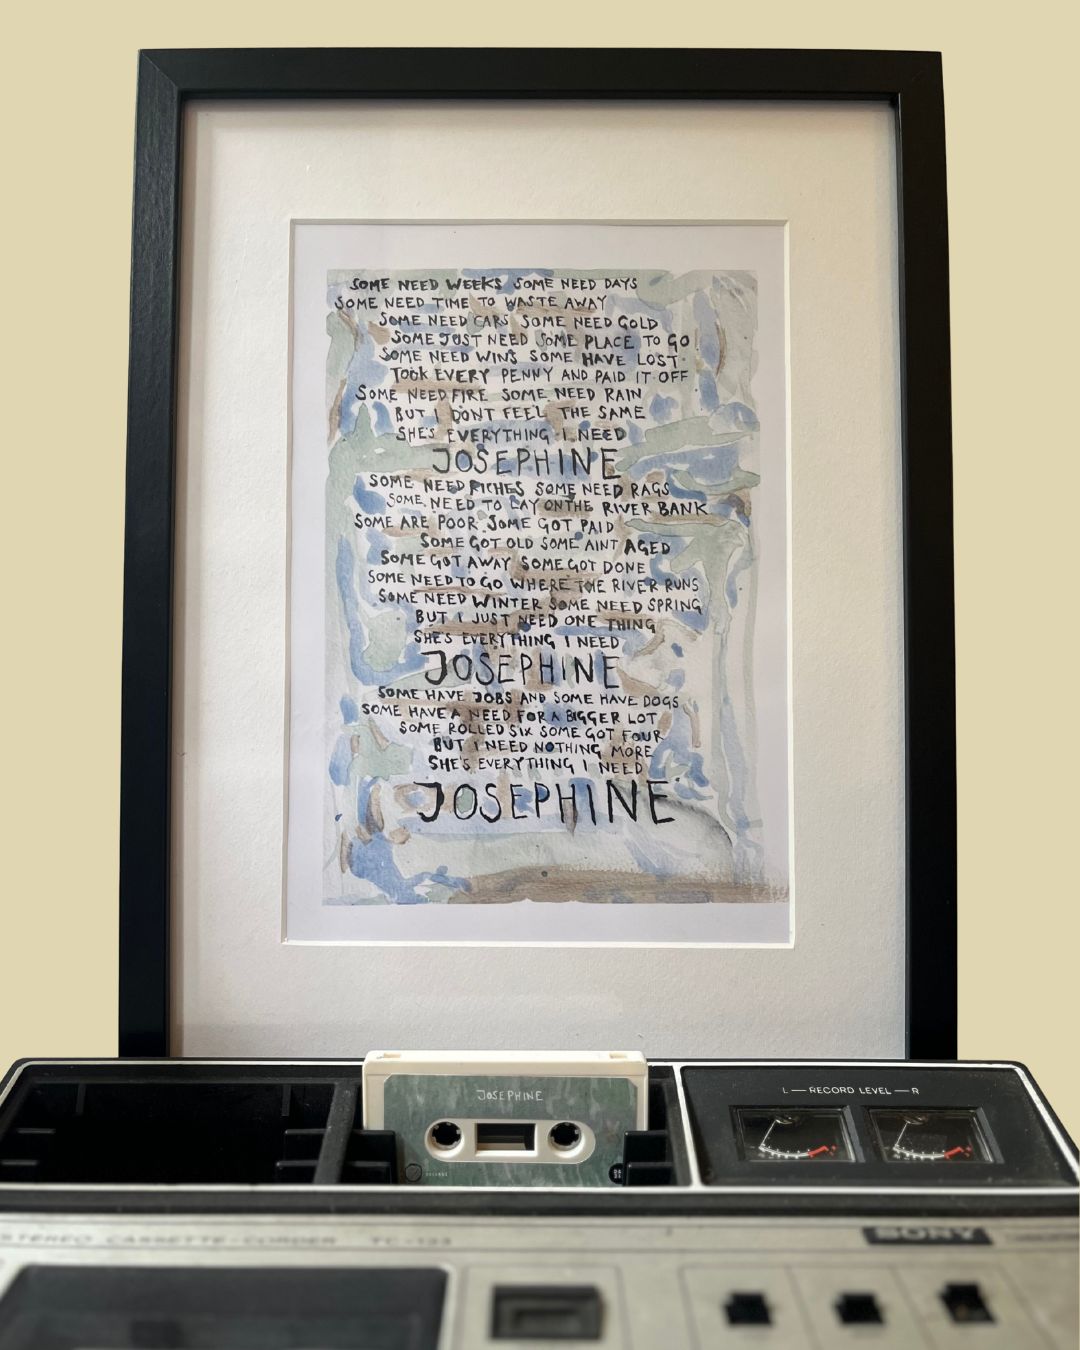 SOME NEED WEEKS SOME NEED DAYS
SOME NEED TIME TO WASTE AWAY
SOME NEED CARS SOME NEED GOLD
SOME JUST NEED SOME PLACE TO GO
SOME NEED WINS SOME HAVE LOST
TOOK EVERY PENNY AND PAID IT OFF
SOME NEED FIRE SOME NEED RAIN
BUT I DONT FEEL THE SAME
SHE'S EVERYTHING I NEED
JOSEPHINE
SOME NEED RICHES SOME NEED RAGS
SOME NEED TO LAY ON THE RIVER BANK
SOME ARE POOR SOME GOT PAID
SOME GOT OLD SOME AINT AGED
SOME GOT AWAY SOME GOT DONE
SOME NEED TO GO WHERE THE RIVER RUNS
SOME NEED WINTER SOME NEED SPRING
BUT I JUST NEED ONE THING
SHE'S EVERYTHING I NEED
JOSEPHINE
SOME HAVE JOBS AND SOME HAVE DOGS
SOME HAVE A NEED FOR A BIGGER LOT
SOME ROLLED SIX SOME GOT FOUR
BUT I NEED NOTHING MORE
SHE'S EVERYTHING I NEED
JOSEPHINE
JOSEPHINE
L — RECORD LEVEL — R
STEREO CASSETTE-CORDER TC-133
SONY